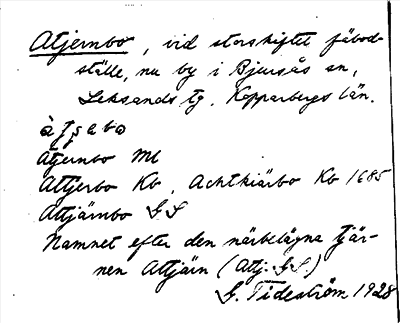 Atjernbo, vid storskiftet fäbod-
ställe, nu by i Bjursås sn,
Leksands tg, Kopparbergs län.
Atjernbo Ml
Attjerbo Kb, Achtkiärbo Kb 1685
Attjärnbo GS
Namnet efter den närbelägna tjär-
nen Attjärn (Attj. GS.)
G. Tideström 1928